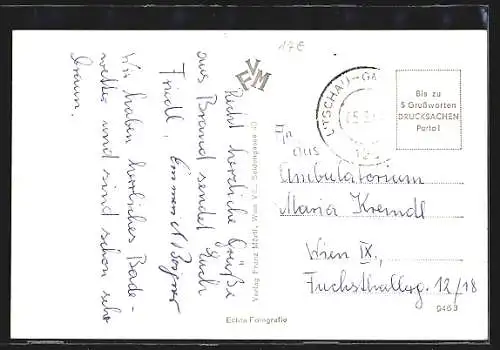 Recht herzliche Grüße
aus Brand sendet Euch
Friedl,
Wir haben herrliches Bade-
wetter und sind schon sehr
braun.
17€
Verlag Franz Mörtl, Wien VIII,
Echte Fotografie
Bis zu
5 Grußworten
DRUCKSACHEN
Porto!
aus
Ambulatorium
Maria Kremdl
Wien IX.,
Fuchsthallerg. 12/18
9463